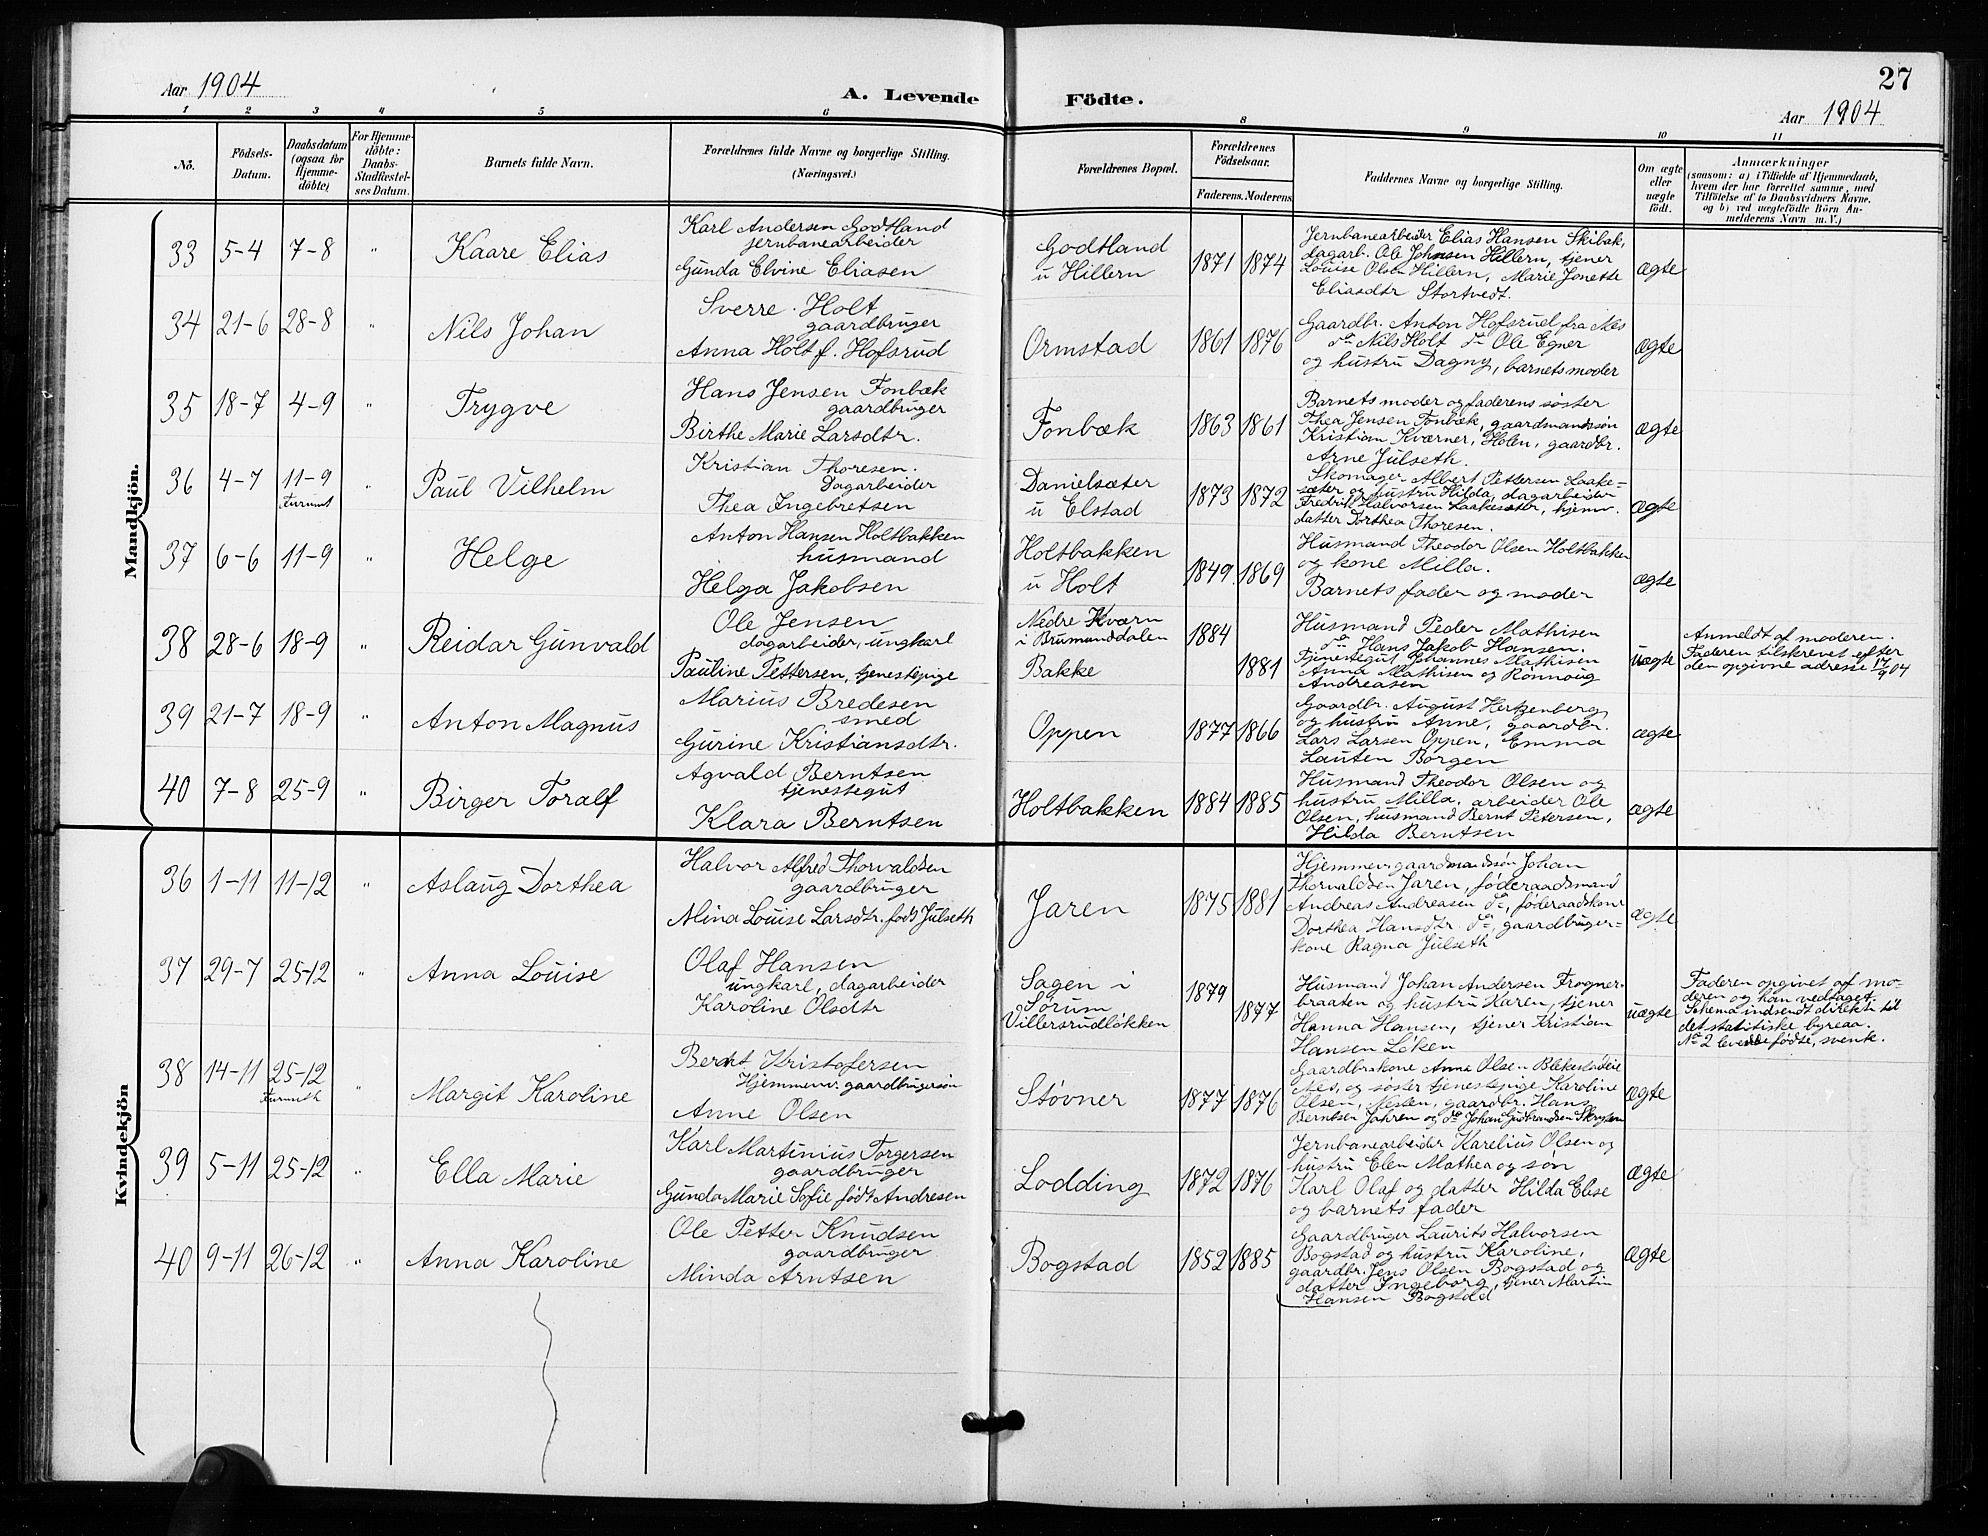 27
Aar 1904
A. Levende
Födte.
Aar 1904
1 2 3 4 5 6 8 9 10 11
Nô.
Födsels-
Datum.
Daabsdatum
(ogsaa for
Hjemme-
döbte)
For Hjemme-
döbte:
Daabs-
Stadfæstel-
ses Datum.
Barnets fulde Navn.
Forældrenes fulde Navne og borgerlige Stilling.
(Næringsvei.)
Forældrenes Bopæl.
Forældrenes
Födselsaar.
Faderens. Moderens.
Faddernes Navne og borgerlige Stilling.
Om ægte
eller
uægte
født.
Anmærkninger
(saasom: a) i Tilfælde af Hjemmedaab,
hvem der har forrettet samme, med
Tilföielse af to Daabsvidners Navne.
og b) ved uægtefödte Börn An-
melderens Navn m. V.)
Mandkjön.
33 5-4 7-8 " Kaare Elias
Karl Andersen Godtland
jernbanearbeider
Gunda Elvine Eliasen
Godtland
u Hillern
1871 1874
Jernbanearbeider Elias Hansen Skibak,
dagarb. Ole Johnsen Hillern, tjener
Louise Olsen Hillern, Marie Jonette
Eliasdtr Stortvedt.
ægte
34 21-6 28-8 " Nils Johan
Sverre Holt
gaardbruger
Anna Holt f. Hofsrud
Ormstad
1861 1876
Gaardbr. Anton Hofsrud fra Næs
do Nils Holt do Ole Egner
og hustru Dagny, barnets moder
ægte
35 18-7 4-9 " Trygve
Hans Jensen Fonbæk
gaardbruger
Birthe Marie Larsdtr.
Fonbæk
1863 1861
Barnets moder og faderens søster
Thea Jensen Fonbæk, gaardmandssøn
Kristian Kværner, Holen, gaardbr.
Arne Julseth.
ægte
36 4-7 11-9 " Paul Vilhelm
Furunæs
Kristian Thoresen.
Dagarbeider
Thea Ingebretsen
Danielsæter
u Elstad
1873 1872
Skomager Albert Pettersen Laake-
sæter og hustru Hilda, dagarbeider
Fredrik Halvorsen Laakesæter, hjemv.
datter Dorthea Thoresen.
ægte
37 6-6 11-9 " Helge
Anton Hansen Holtbakken
husmand
Helga Jakobsen
Holtbakken
u Holt
1849 1869
Husmand Theodor Olsen Holtbakken
og kone Milla.
Barnets fader og moder
ægte
38 28-6 18-9 " Reidar Gunvald
Ole Jensen
dagarbeider, ungkarl
Pauline Pettersen, tjenestepige
Nedre Kværn
i Brumunddalen
Bakke
1884
1881
Husmand Peder Mathisen
do Hans Jakob Hansen.
Tjenestegut Johannes Mathisen
Anna Mathisen og Ronnoug
Andreasen
uægte
Anmeldt af moderen.
Faderen tilskrevet efter
den opgivne adresse 17/9 04
39 21-7 18-9 " Anton Magnus
Marius Bredesen
smed
Gurine Kristiansdtr.
Oppen
1877 1866
Gaardbr. August Hertzenberg
og hustru Anne, gaardbr.
Lars Larsen Oppen, Emma
Lauten Borgen
ægte
40 7-8 25-9 " Birger Toralf
Agvald Berntsen
tjenestegut
Klara Berntsen
Holtbakken
1884 1885
Husmand Theodor Olsen og
hustru Milla, arbeider Ole
Olsen, husmand Bernt Petersen,
Hilda Berntsen
ægte
Kvindekjön
36 1-11 11-12 " Aslaug Dorthea
Halvor Alfred Thorvaldsen
gaardbruger
Mina Louise Larsdtr. født Julseth
Jaren
1875 1881
Hjemmev. gaardmandssøn Johan
Thorvaldsen Jaren, føderaadsmand
Andreas Andreasen do, føderaadskone
Dorthea Hansdtr do, gaardbruger-
kone Ragna Julseth
ægte
37 29-7 25-12 " Anna Louise
Olaf Hansen
ungkarl, dagarbeider
Karoline Olsdtr
Sagen i
Sørum
Villersrudløkken
1879
1877
Husmand Johan Andersen Frogner-
braaten og hustru Karen, tjener
Hanna Hansen, tjener Kristian
Hansen Løken
uægte
Faderen opgivet af mo-
deren og han vedtaget.
Schema indsendt direkte til
det statistiske byreau.
No 2 levende fødte, svenk.
38 14-11 25-12 " Margit Karoline
Bernt Kristofersen
Hjemmev. gaardbrugersøn
Anne Olsen
Støvner
1877 1876
Gaardbr.kone Anna Olsen
Næs, og søster tjenestepige Karoline
Olsen, Næsten, gaardbr. Hans
Berntsen Jahren og do Johan Gudbrandsen
ægte
39 5-11 25-12 " Ella Marie
Karl Martinius Torgersen
gaardbruger
Gunda Marie Sofie født Andresen
Lodding
1872 1876
Jernbanearbeider Karelius Olsen og
hustru Elen Mathea og søn
Karl Olaf og datter Hilda Elise
og barnets fader
ægte
40 9-11 26-12 " Anna Karoline
Ole Petter Knudsen
gaardbruger
Minda Arntsen
Bogstad
1852 1885
Gaardbruger Laurits Halvorsen
Bogstad og hustru Karoline,
gaardbr. Jens Olsen Bogstad og
datter Ingeborg, tjener Martin
Hansen Bogstad
ægte